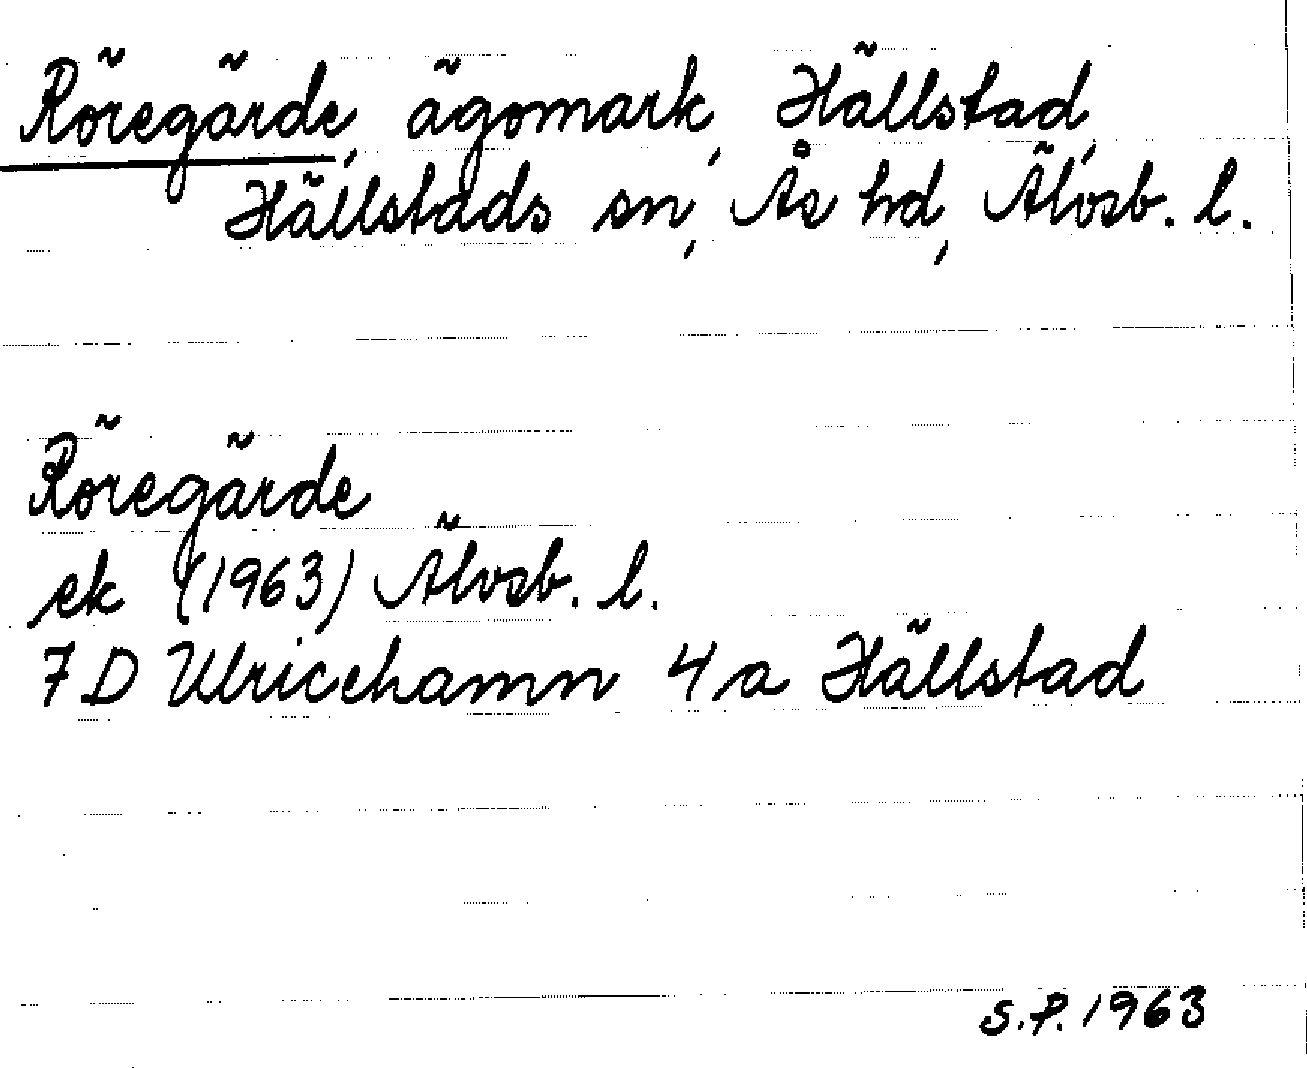 Röregärde, ägomark, Hällstad,
Hällstads sn, Ås hd, Älvsb. l.
Röregärde
ek (1963) Älvsb. l.
7 D Ulricehamn 4 a Hällstad
S.P. 1963